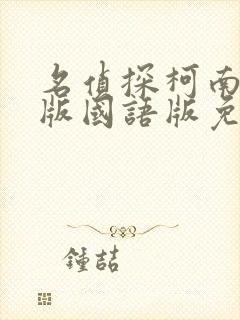 名偵探柯南
版國語版免
鍾喆